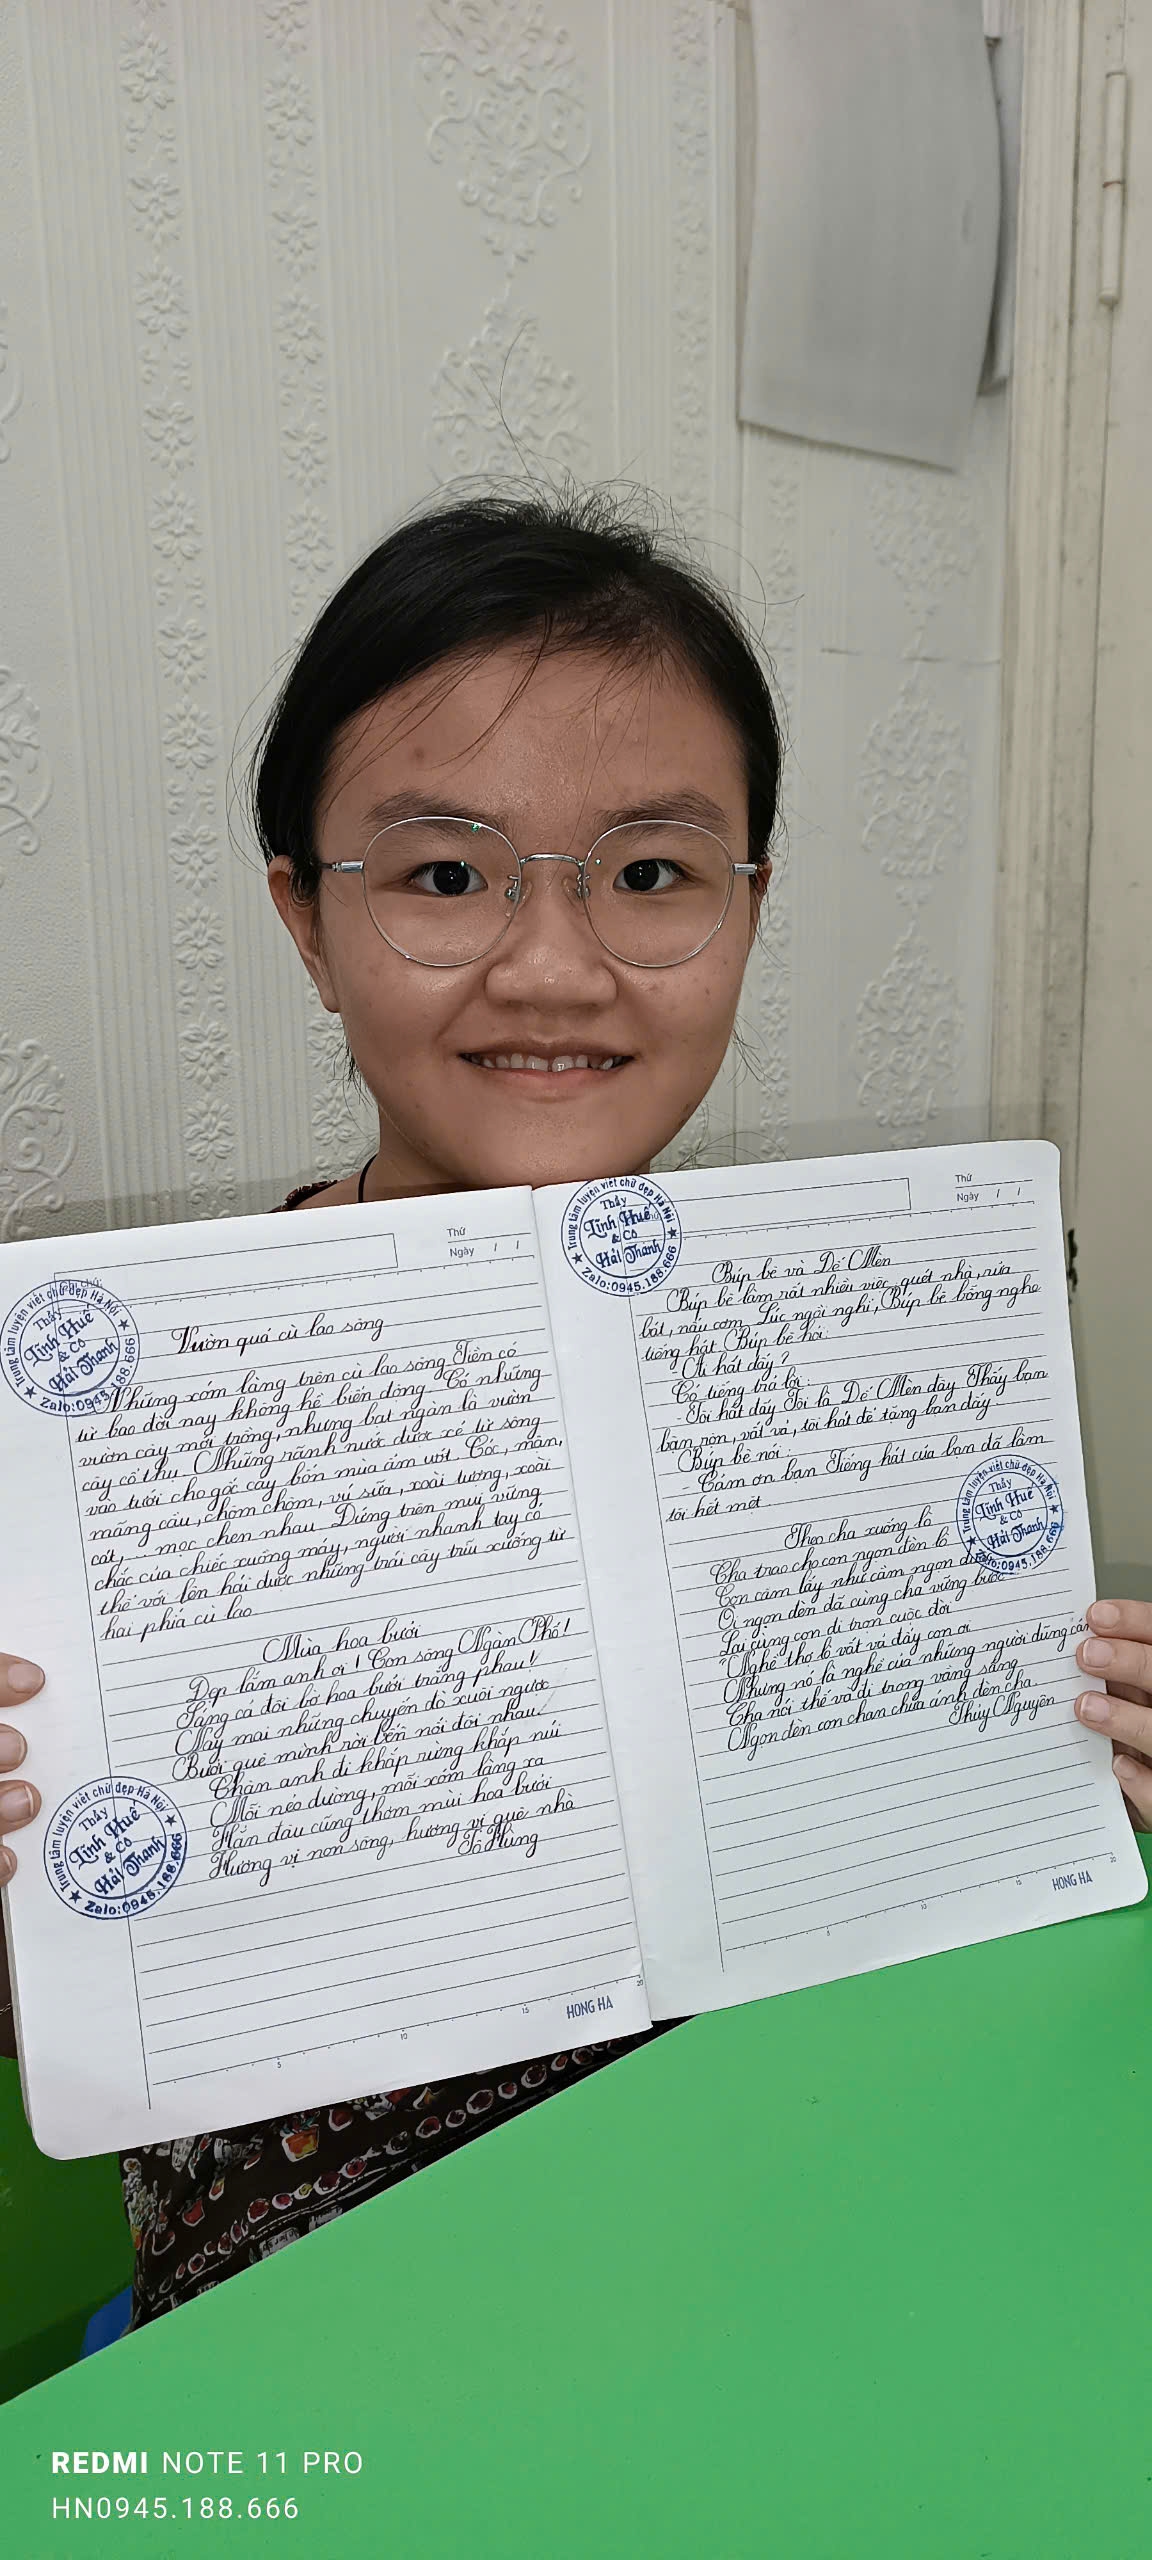 Thứ
Ngày / /
Trung tâm luyện viết chữ đẹp Hà Nội
Thầy
Tình Huế
& Cô
Hải Thanh
Zalo:0945.188.666
Vườn quả cù lao sông
Những xóm làng trên cù lao sông Tiền có
từ bao đời nay không hề biến động. Có những
vườn cây mới trồng, nhưng bạt ngàn là vườn
cây cổ thụ. Những rãnh nước được xẻ từ sông
vào tưới cho gốc cây bốn mùa ẩm ướt. Cóc, mận,
mãng cầu, chôm chôm, vú sữa, xoài tượng, xoài
cát,... mọc chen nhau. Đứng trên mui vững
chắc của chiếc xuồng máy, người nhanh tay có
thể với lên hái được những trái cây trĩu xuống từ
hai phía cù lao.
Mùa hoa bưởi
Đẹp lắm anh ơi! Con sông Ngàn Phố!
Sáng cả đôi bờ hoa bưởi trắng phau!
Nay mai những chuyến đò xuôi ngược
Bưởi quê mình rời bến nối đôi nhau.
Chân anh đi khắp rừng khắp núi
Mỗi nẻo đường, mỗi xóm làng xa
Hẳn đâu cũng thơm mùi hoa bưởi
Hương vị non sông, hương vị quê nhà
Tô Hùng
Trung tâm luyện viết chữ đẹp Hà Nội
Thầy
Tình Huế
& Cô
Hải Thanh
Zalo:0945.188.666
5
10
15
20
HONG HA
Thứ
Ngày / /
Trung tâm luyện viết chữ đẹp Hà Nội
Thầy
Tình Huế
& Cô
Hải Thanh
Zalo:0945.188.666
Búp bê và Dế Mèn
Búp bê làm rất nhiều việc, quét nhà, rửa
bát, nấu cơm. Lúc ngồi nghỉ, Búp bê bỗng nghe
tiếng hát. Búp bê hỏi:
- Ai hát đấy?
Có tiếng trả lời:
- Tôi hát đấy. Tôi là Dế Mèn đây. Thấy bạn
bận rộn, vất vả, tôi hát để tặng bạn đấy.
Búp bê nói:
- Cảm ơn bạn. Tiếng hát của bạn đã làm
tôi hết mệt.
Trung tâm luyện viết chữ đẹp Hà Nội
Thầy
Tình Huế
& Cô
Hải Thanh
Zalo:0945.188.666
Theo cha xuống lò
Cha trao cho con ngọn đèn lò
Con cầm lấy như cầm ngọn
Ơi ngọn đèn đã cùng cha vững bước
Lại cùng con đi trọn cuộc đời
"Nghề thợ lò vất vả đấy con ơi
Nhưng nó là nghề của những người dũng
Cha nói thế và đi trong vầng sáng
Ngọn đèn con chan chứa ánh đèn cha.
Thúy Nguyên
5
10
15
20
HONG HA
REDMI NOTE 11 PRO
HN0945.188.666